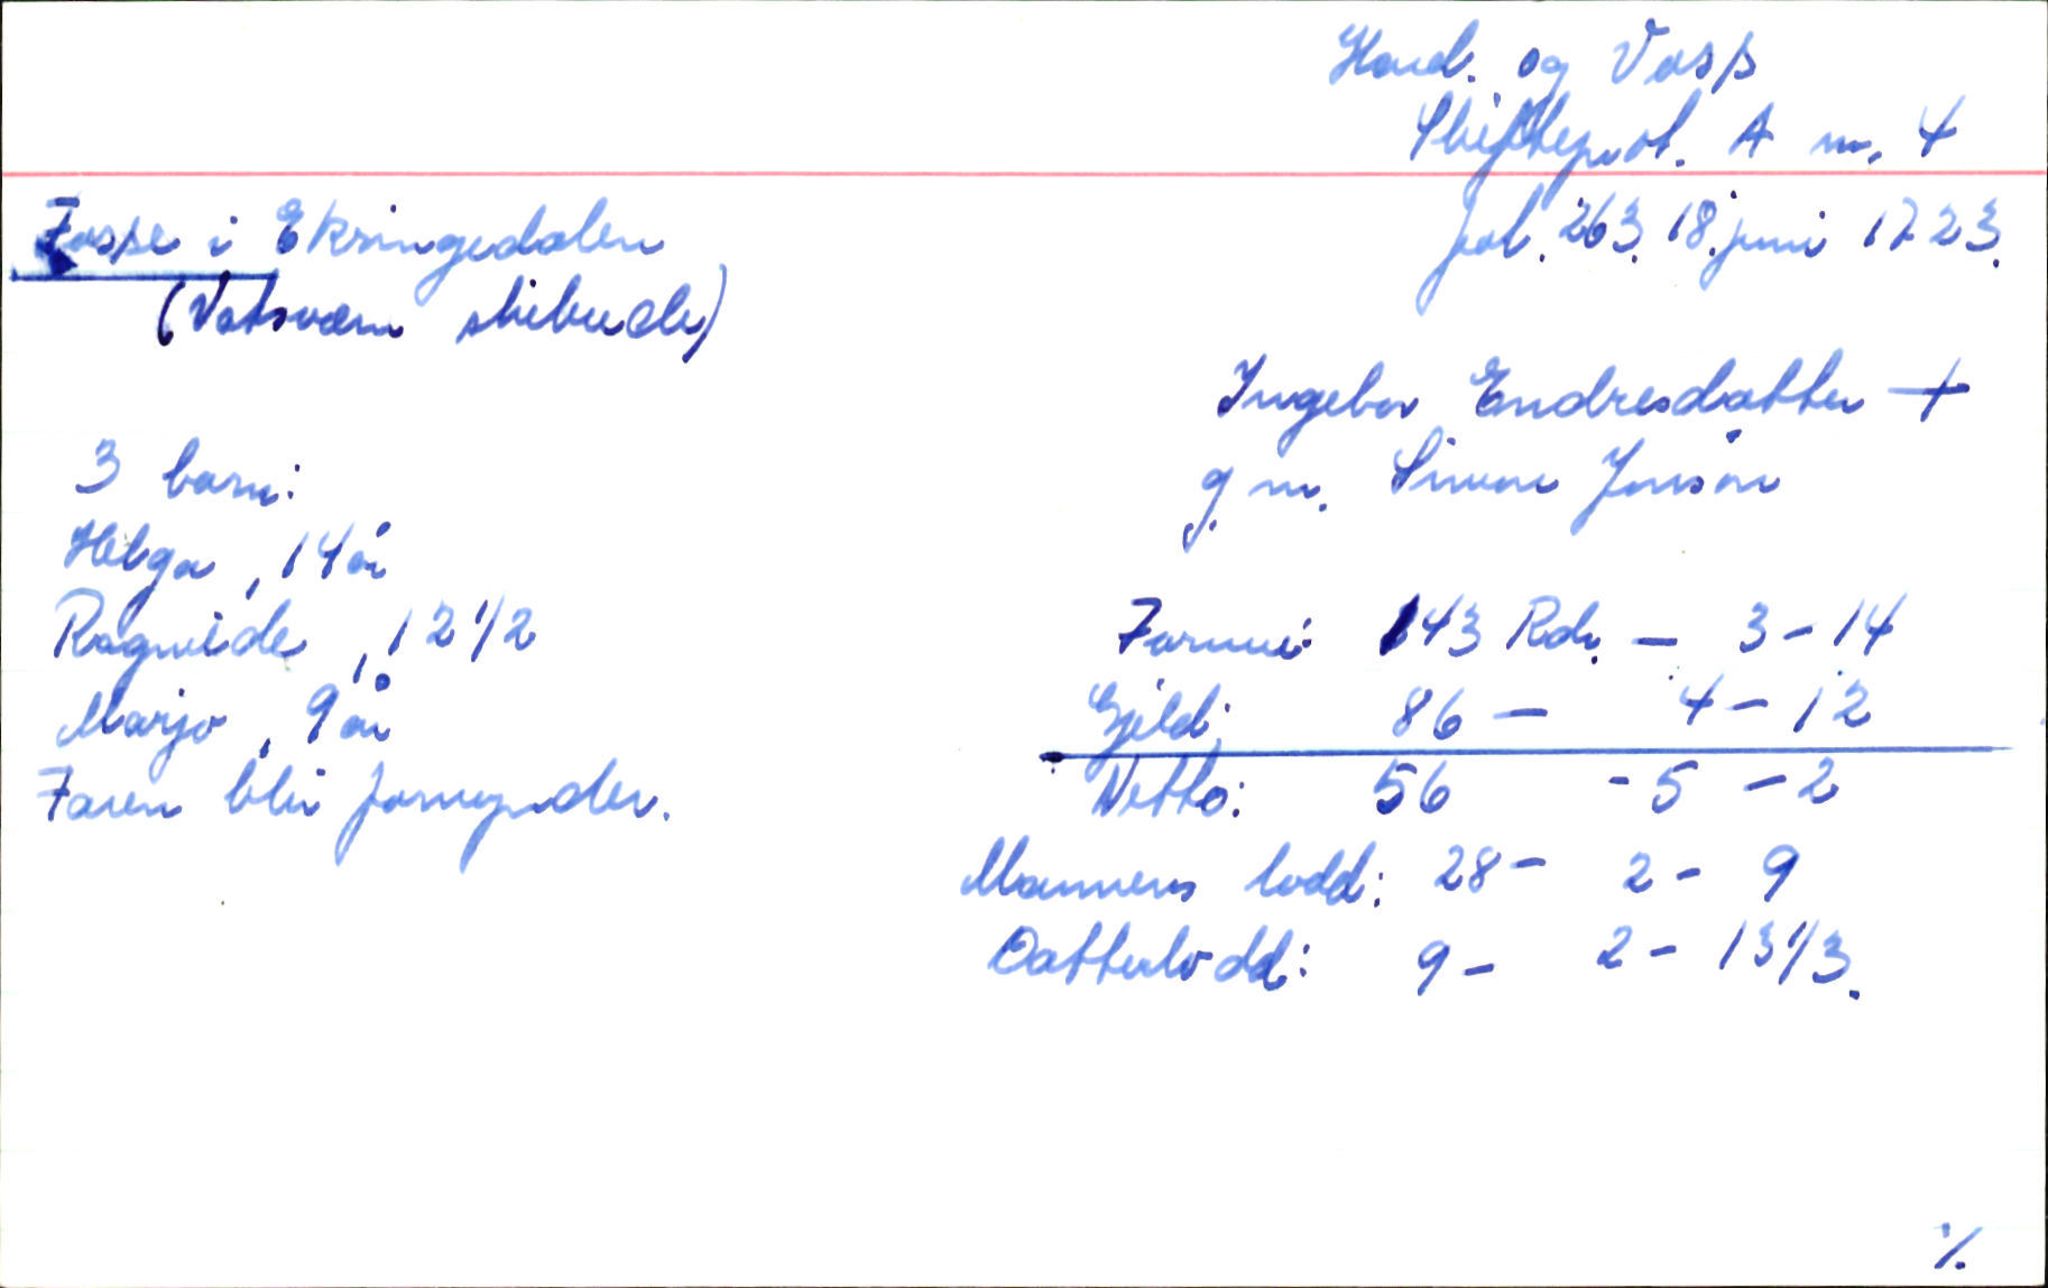 Hard. og Voss
Skifteprot. A nr. 4
fol. 263. 18. juni 1723.
Fosse i Ekringedalen
(Vatsværn skibrede)
Ingebor Endresdatter +
g. m. Simon Jonson
3 barn:
Helga, 14 år
Ragnilde, 12 1/2
Marjo, 9 år
Faren blir formynder.
Formue: 143 Rdr. - 3 - 14
Gjeld: 86 - 4 - 12
Netto: 56 - 5 - 2
Mannens lodd: 28 - 2 - 9
Datterlodd: 9 - 2 - 13 1/3.
./.